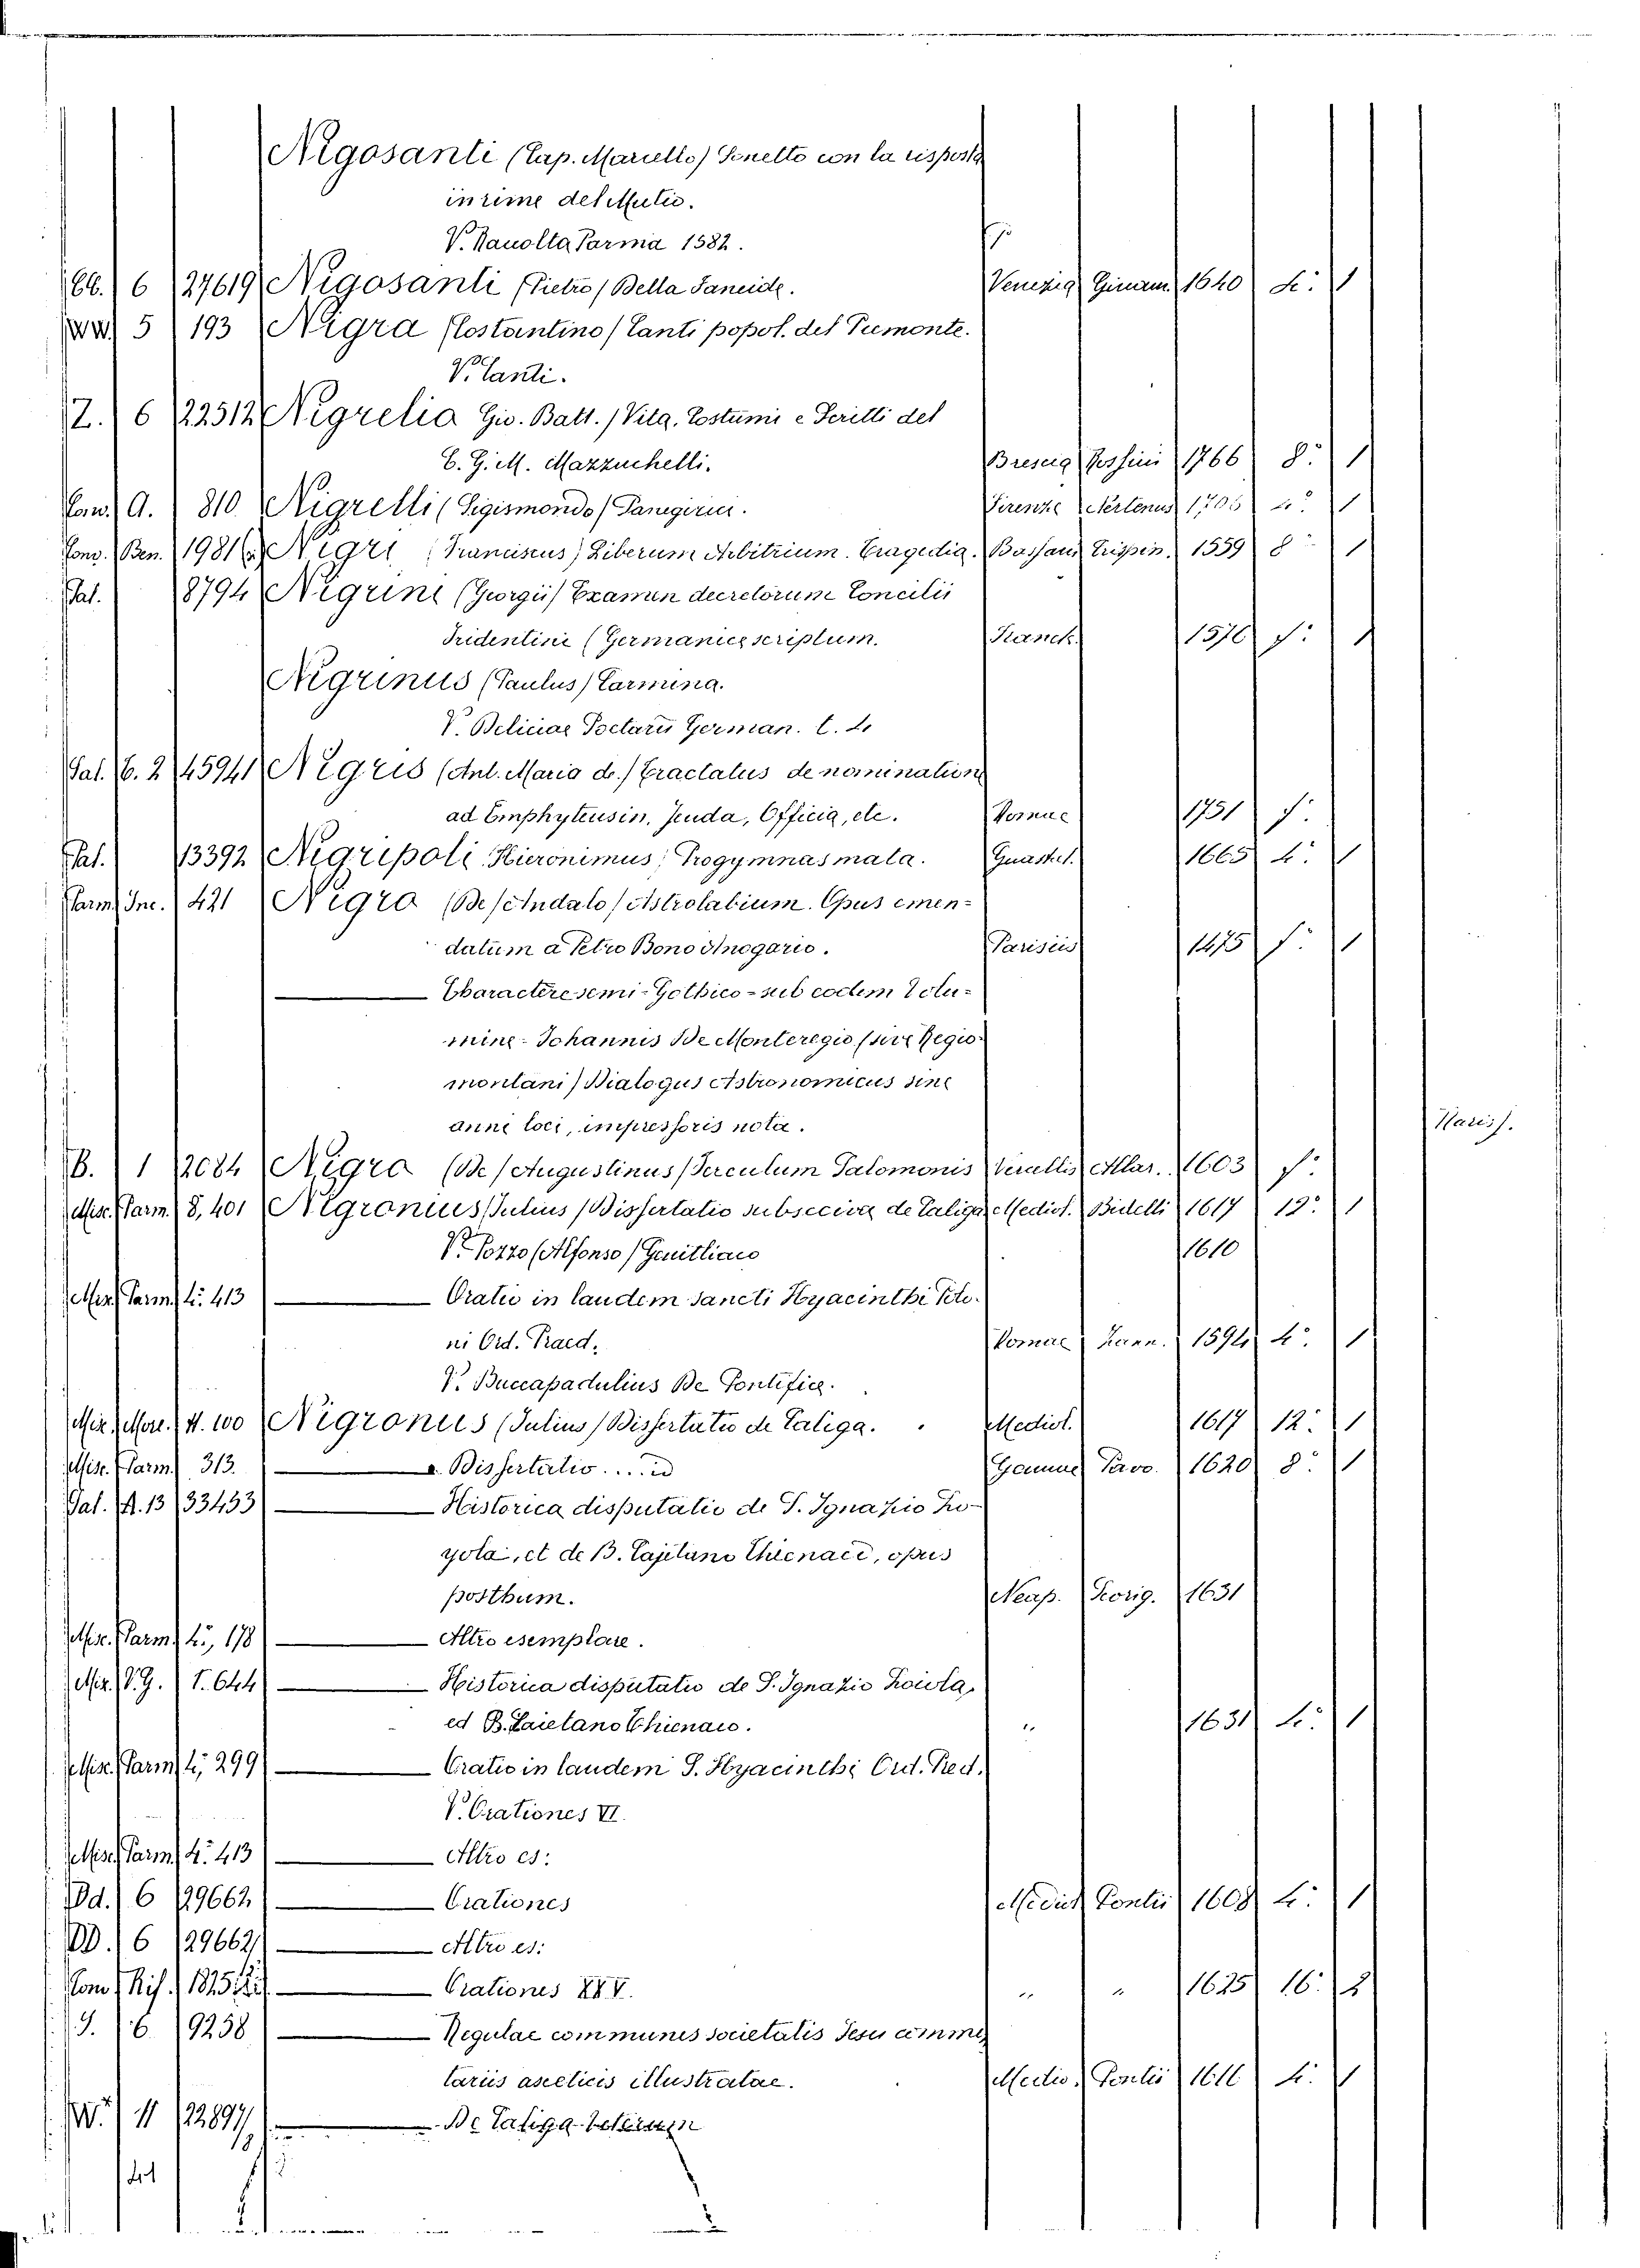 Nigosanti (Cap. Mariello) Sonetto con la risposta
in rime del Mutio.
V. Racolta Parma 1582.
6 27619 Nigosanti (Pietro) Bella Saneide. Venezia Ginam. 1640 4: 1
WW 5 193 Nigra (Costantino) Canti popol. del Piemonte.
V. Canti.
Z. 6 22512 Nigrelia Gio. Batt. / Vita, Costumi e Scritti del
C. G. M. Mazzuchelli. Brescia Bossini 1766 8: 1
Con. A. 810 Nigrelli (Sigismondo) Panegirici. Firenze 1
Conv. Ben. 1981 Nigri (Franciscus) Liberum Arbitrium. Tragedia. Bassani Crispin. 1559 8 1
Pal. 8794 Nigrini (Georgii) Examen decretorum Concilii
Tridentini (Germanice scriptum. Franck. 1576 f: 1
Nigrinus (Paulus) Carmina.
V. Deliciae Poetarũ German. t. 4
Pal. C. 2 45941 Nigris (Ant. Maria de) Tractatus de nominatione
ad Emphyteusin, feuda, Officia, etc. Romae 1751 f:
Pal. 13392 Nigripoli Hieronimus, Progymnasmata. Guastal. 1665 4: 1
Parm. Inc. 421 Nigro (De) Andalo / Astrolabium. Opus emen-
datum a Petro Bono Anogario. Parisiis 1475 f: 1
Charactere semi-Gothico - sub eodem Volu-
mine - Johannis De Monteregio (sive Regio-
montani) Dialogus Astronomicus sine
anni loci, impressoris nota.
B. 1 2084 Nigro (De) Augustinus / Ferculum Salomonis Vercellis Mar. 1603 f:
Misc. Parm. 8, 401 Nigronius Julius / Dissertatio subseciva de Caliga Mediol. Bidelli 1617 12: 1
V. Pozzo (Alfonso) Genitliaco 1610
Misc. Parm. 4: 413 Oratio in laudem sancti Hyacinthi Polo-
ni Ord. Praed. Romae Zann. 1594 4: 1
V. Buccapadulius De Pontifice.
Misc. More. 4. 100 Nigronius (Julius) Dissertatio de Caliga. Mediol. 1617 12: 1
Misc. Parm. 313. a. Dissertatio.... id Genuae Pavo. 1620 8: 1
Pal. A. 13 33453 Historica disputatio de S. Ignazio Lo-
yola, et de B. Cajetano Thienaei, opus
posthum. Neap. Scorig. 1631
Misc. Parm. 4:, 178 Altro esemplare.
Mis. V. G. T. 644 Historica disputatio de S. Ignazio Loiola,
ed B. Caietano Thienaeo. " 1631 4: 1
Misc. Parm. 4:, 299 Oratio in laudem S. Hyacinthi Ord. Pred.
V. Orationes VI.
Misc. Parm. 4: 413 Altro es:
Dd. 6 29662 Orationes Mediol. Pontii 1608 4: 1
DD. 6 29662 Altro es:
Com. Rif. Orationes XXV. " " 1625 16: 2
S. 6 9258 Regulae communes societatis Jesu comme
tariis asceticis illustratae. Medio. Pontii 1616 4: 1
W. 11 22897 De Caliga Veterum
Hareis.